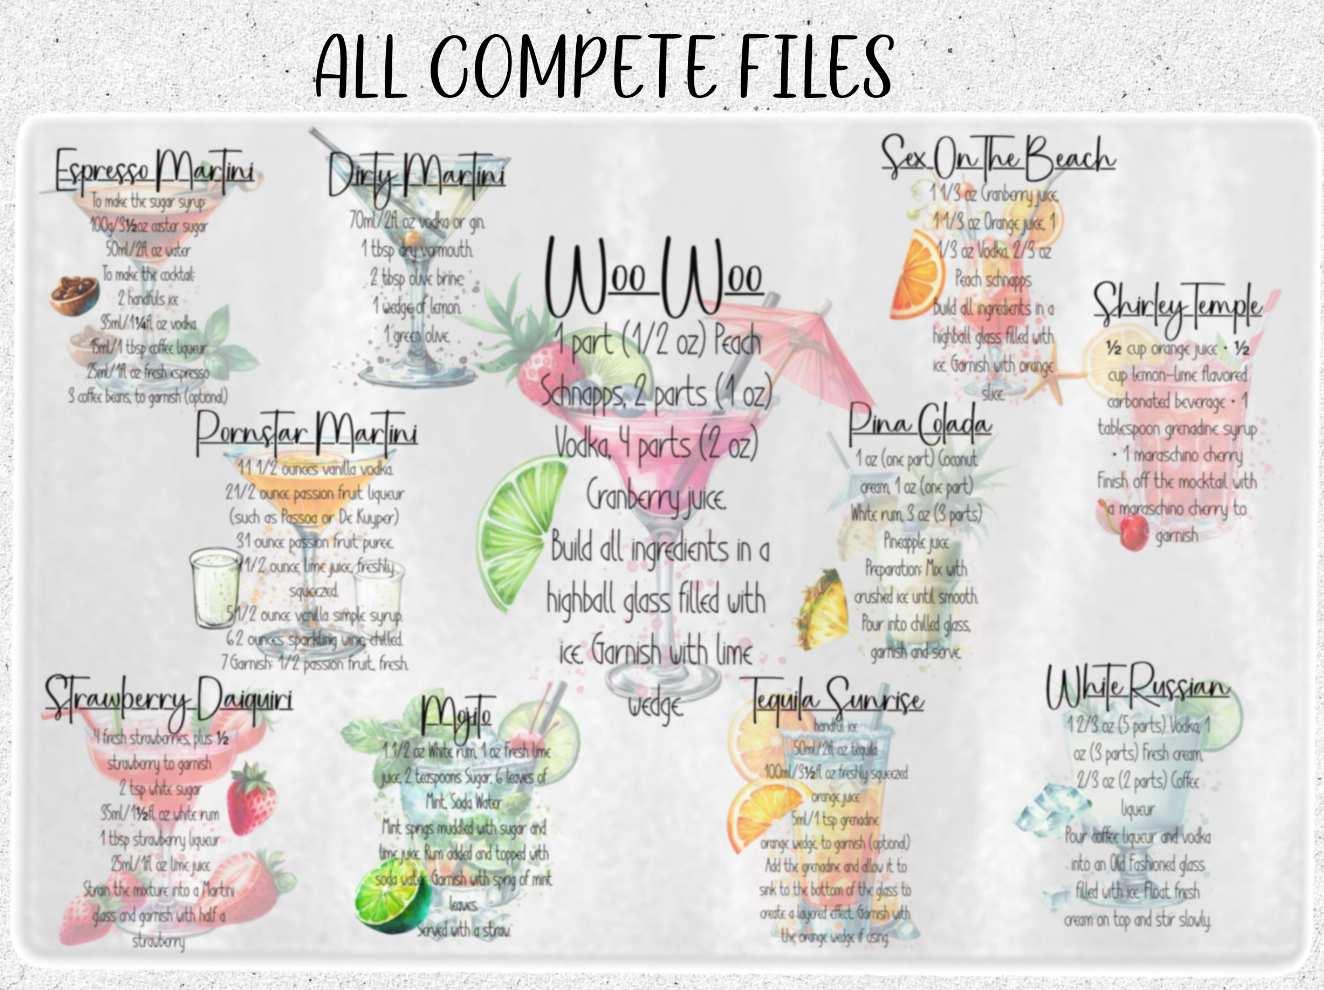 ALL COMPETE FILES
Espresso Martini
To make the sugar syrup:
100g/3½oz caster sugar
50ml/2fl oz water
To make the cocktail:
2 handfuls ice
35ml/1¼fl oz vodka
15ml/1 tbsp coffee liqueur
25ml/1fl oz fresh espresso
3 coffee beans, to garnish (optional)
Dirty Martini
70ml/2fl oz vodka or gin.
1 tbsp dry vermouth.
2 tbsp olive brine.
1 wedge of lemon.
1 green olive.
Woo Woo
1 part (1/2 oz) Peach
Schnapps, 2 parts (1 oz)
Vodka, 4 parts (2 oz)
Cranberry juice.
Build all ingredients in a
highball glass filled with
ice Garnish with lime
wedge.
Sex On The Beach
1 1/3 oz Cranberry juice,
1 1/3 oz Orange juice, 1
1/3 oz Vodka, 2/3 oz
Peach schnapps
Build all ingredients in a
highball glass filled with
ice Garnish with orange
slice.
Shirley Temple
½ cup orange juice • ½
cup lemon-lime flavored
carbonated beverage • 1
tablespoon grenadine syrup
• 1 maraschino cherry
Finish off the mocktail with
a maraschino cherry to
garnish
Pornstar Martini
1 1 1/2 ounces vanilla vodka.
2 1/2 ounce passion fruit liqueur
(such as Passoa or De Kuyper)
3 1 ounce passion fruit puree.
1/2 ounce lime juice, freshly
squeezed.
5 1/2 ounce vanilla simple syrup.
6 2 ounces sparkling wine, chilled.
7 Garnish: 1/2 passion fruit, fresh.
Pina Colada
1 oz (one part) Coconut
cream, 1 oz (one part)
White rum, 3 oz (3 parts)
Pineapple juice
Preparation: Mix with
crushed ice until smooth.
Pour into chilled glass,
garnish and serve.
Strawberry Daiquiri
4 fresh strawberries, plus ½
strawberry to garnish
2 tsp white sugar
35ml/1½fl oz white rum
1 tbsp strawberry liqueur
25ml/1fl oz lime juice
Strain the mixture into a Martini
glass and garnish with half a
strawberry
Mojito
1 1/2 oz White rum, 1 oz Fresh lime
juice, 2 teaspoons Sugar, 6 leaves of
Mint, Soda Water
Mint sprigs muddled with sugar and
lime juice. Rum added and topped with
soda water. Garnish with sprig of mint
leaves.
Served with a straw.
Tequila Sunrise
handful ice
50ml/2fl oz tequila
100ml/3½fl oz freshly squeezed
orange juice
5ml/1 tsp grenadine
orange wedge, to garnish (optional)
Add the grenadine and allow it to
sink to the bottom of the glass to
create a layered effect. Garnish with
the orange wedge if using.
White Russian
1 2/3 oz (5 parts) Vodka, 1
oz (3 parts) Fresh cream,
2/3 oz (2 parts) Coffee
liqueur
Pour coffee liqueur and vodka
into an Old Fashioned glass
filled with ice Float fresh
cream on top and stir slowly.